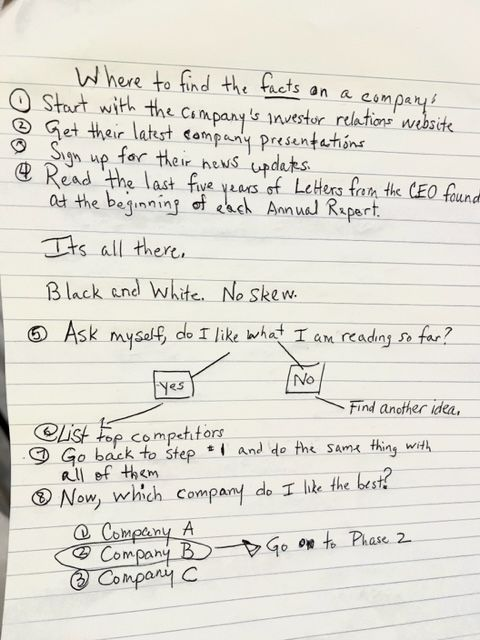 Where to find the facts on a company:
① Start with the Company's investor relations website
② Get their latest company presentations
③ Sign up for their news updates.
④ Read the last five years of Letters from the CEO found
at the beginning of each Annual Report.
Its all there.
Black and White. No skew.
⑤ Ask myself, do I like what I am reading so far?
yes
No
Find another idea.
⑥ List top competitors
⑦ Go back to step #1 and do the same thing with
all of them
⑧ Now, which company do I like the best?
① Company A
② Company B → Go on to Phase 2
③ Company C